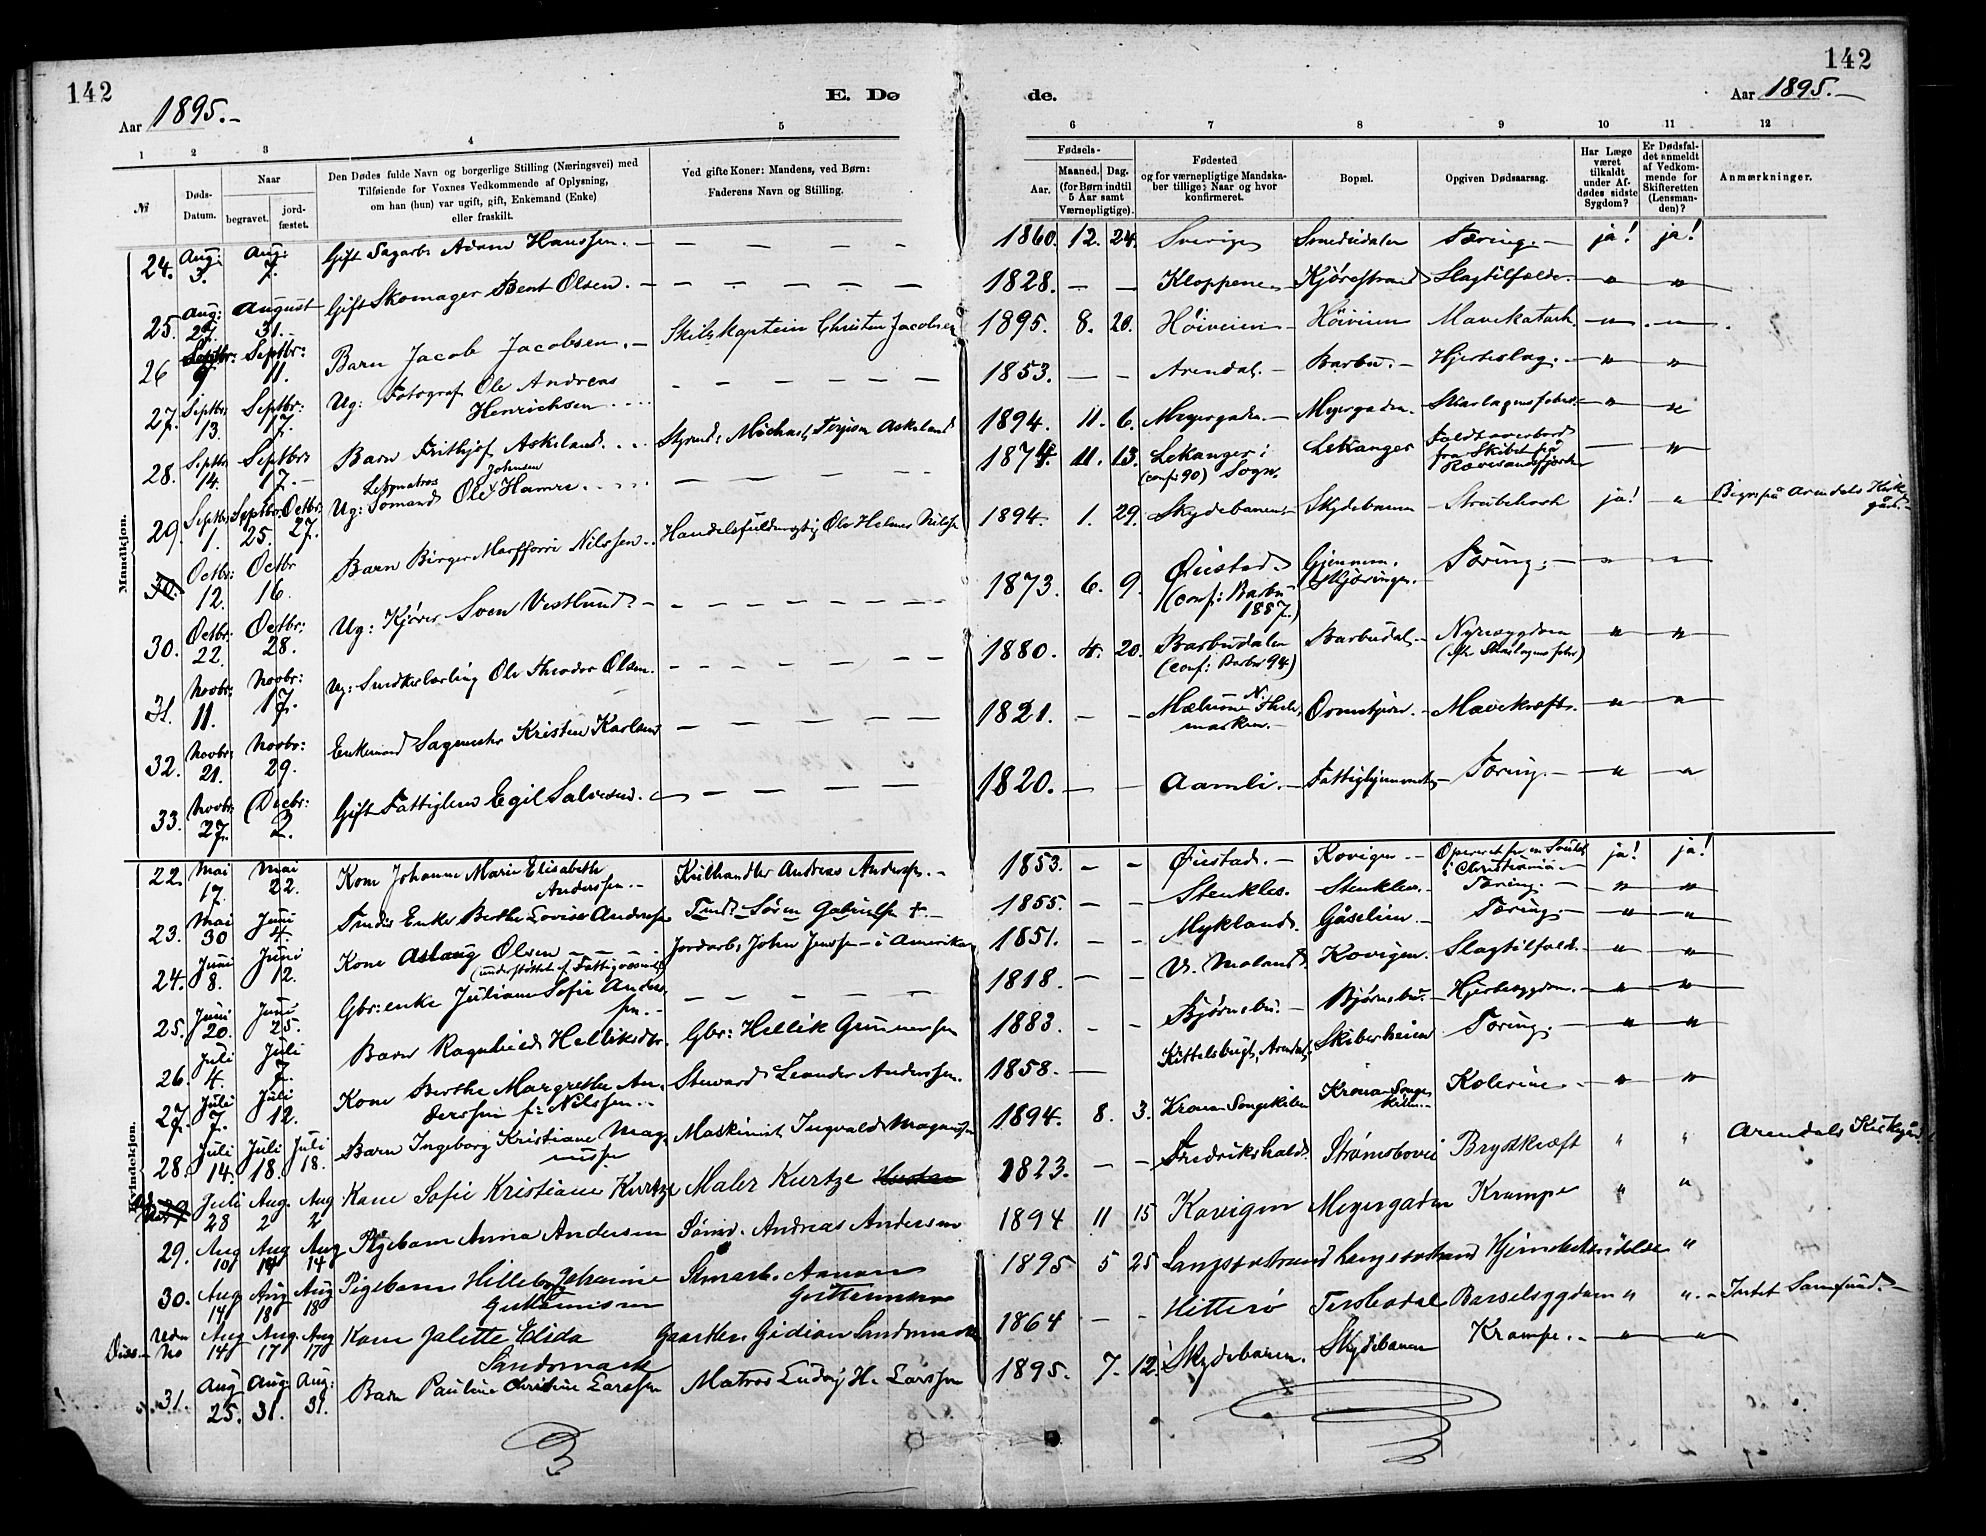 142
Aar 1895.-
E. Dø
1 2 3 4 5
№
Døds-Datum.
Naar
begravet.
jord-fæstet.
Den Dødes fulde Navn og borgerlige Stilling (Næringsvei) med
Tilføiende for Voxnes Vedkommende af Oplysning,
om han (hun) var ugift, gift, Enkemand (Enke)
eller fraskilt.
Ved gifte Koner: Mandens, ved Børn:
Faderens Navn og Stilling.
Mandkjøn.
24. Aug: 3. Aug: 7. Gift Sagarb. Adam Hanssen. — — — — —
25. Aug: 27. August 31. Gift Skomager Bent Olsen. — — — — —
26 Septbr: 9 Septbr: 11. Barn Jacob Jacobsen. — Skibskaptein Christen Jacobsen
27. Septbr 13. Septbr: 17. Ug: Fotograf Ole Andreas
Henrichsen. — — — — —
28. Septbr 14. Septbr: 17. Barn Frithjof Askeland. Styrmd: Michael Terjesen Askeland
29. Septbr 1. Septbr. 25. Octbr. 27. Ug: Letmatros Sømand Ole Johnsen Hamre. — —
30. Octbr: 12. Octbr 16. Barn Birger Nilssen. Handelsfuldmægtig Ole Helmer Nilssen
30. Octbr: 22. Octbr: 28. Ug: Kjører Sven Vestlund. — — — — —
31. Novbr: 11. Novbr: 17. Ug: Snedkerlærling Ole Theodor Olsen. — — — — —
32. Novbr: 21. Novbr: 29. Enkemand Sagmester Kristen Karlsen — — — —
33. Novbr: 27. Decbr: 2. Gift Fattiglem Egil Salvesen. — — — —
Kvindekjøn.
22. Mai 17. Mai 22. Kone Johanne Marie Elisabeth
Anderssen. — Andreas Anderssen. —
23. Mai 30 Juni 4. Enke Berthe Lovise Anderssen Søren Gabrielsen +. —
24. Juni 8. Juni 12. Kone Aslaug Olsen — — — Jordarb. John Jenssen — i Amerika
(understøttet af Fattigvæsenet)
25. Juni 20. Juni 25. Gbr: enke Juliane Sofie Anders-
sen. — — — — —
26. Juli 4. Juli 7. Barn Ragnhild Helliksdtr. Gbr: Hellik Gunnersen
27. Juli 7. Juli 12. Kone Berthe Margrethe An-
derssen f: Nilssen. Steward Leander Anderssen.
28. Juli 14. Juli 18. Juli 18. Barn Ingeborg Kristiane Mag-
nussen Maskinist Ingvald Magnussen
Juli 28 Aug. 2 Aug 2 Kone Sofie Kristiane Kurtze Maler Kurtze
29. Aug 10 Aug 14 Aug 14 Pigebarn Anna Andersen Sømd. Andreas Andersen
30. Aug 14 Aug 18 Aug 18 Pigebarn Hilleborg Johanne
Guttormsen Aanon
Guttormsen
Diss. No Aug 14 Aug. 17 Aug 17 Kone Jolette Elida
Sandsmark Gaardbr. Gidion Sandsmark
31. Aug 25. Aug: 31. Aug: 31. Barn Pauline Christine Larssen Matros Ludvig H. Larssen
142
Aar 1895.—
de.
6 7 8 9 10 11 12
Fødsels-
Aar.
Maaned. Dag.
(for Børn indtil
5 Aar samt
Værnepligtige).
Fødested
og for værnepligtige Mandska-
ber tillige: Naar og hvor
konfirmeret.
Bopæl.
Opgiven Dødsaarsag.
Har Læge
været
tilkaldt
under Af-
dødes sidste
Sygdom?
Er Dødsfal-
det anmeldt
af Vedkom-
mende for
Skifteretten
(Lensman-
den)?
Anmærkninger.
1860. 12. 24. Sverige Smededalen Tæring. — ja! ja!
1828. — — Kloppene Kjørestrand Slagtilfælde. — " — "
1895. 8. 20. Høiveien — Høiveien Mavekatarh. — " — "
1853. — — Arendal. — Barbu. — Hjerteslag. — " — "
1894. 11. 6. Meyergaden. — Meyergaden. Skarlagensfeber. — " — "
1874. 11. 13. Lekanger i
(conf: 90) Sogn. Lekanger Faldt overbord
fra Skibet på
Rævesandsfjorden — "
1894. 1. 29. Skydebanen Skydebanen Strubehoste ja! — " Begr. på Arendals Kirke-
gård. —
1873. 6. 9. Øiestad.
(conf: Barbu
1887.) Gjennem-
skjæringen. Tæring. — " — "
1880. 4. 20. Barbudalen
(conf: Barbu 94) Barbudal. — Nyresygdom
(efter Skarlagensfeber) " — "
1821. — — N. Thele-
marken. — — Mavekræft. — " — "
1820. — — Aamli. — Fattighjemmet Tæring. — " — "
1853. — — Øiestad. — Kovigen. — Opereret for en Svulst
i Christiania — ja! ja!
1855. — — Stenklev. Stenklev. — Tæring. — " — "
1851. — — Mykland. Gåselien. — Tæring. — " — "
1818. — — V. Moland. Kovigen. Slagtilfælde. — " — "
1883. — — Bjørnsbu. — Bjørnsbu. — Hjertesygdom. — " — "
1858. — Kittelsbugt, Arendal. Skiberheien Tæring. — " — "
1894. 8. 3. Krona Songekilen Krona Songe-
kilen. — Kolerine. — " — "
1823. — — Fredrikshald. Strømsbovei Brystkræft " " Arendals Kirkegård
1894 11 15 Kovigen Meyergaden Krampe " "
1895 5 25 Langsævstrand Langsævstrand "
1864 — — Hitterø Terslevdal Barselsygdom " " — Intet Samfund. —
1895. 7. 12. Skydebanen. Skydebanen Krampe. — " — "